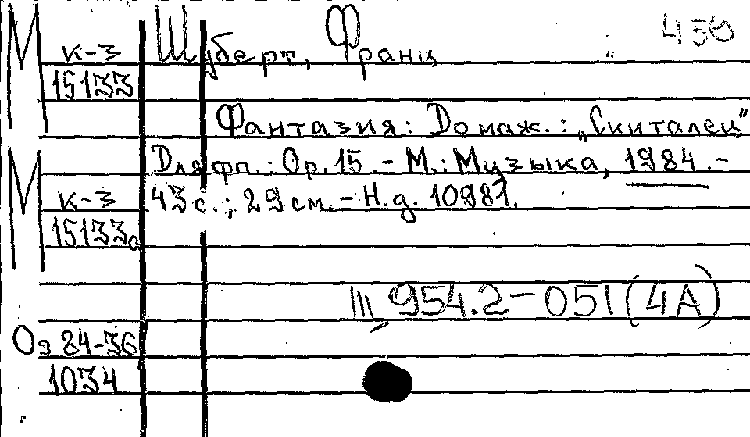 М к-3 Шуберт, Франц 450
15133
Фантазия: До маж.: „Скиталец"
М Для фп.: Ор. 15. - М.: Музыка, 1984. -
к-3 43 с.; 29 см. - Н.д. 10981.
15133а
III, 954.2-051(4А)
Оз 84-36
1034